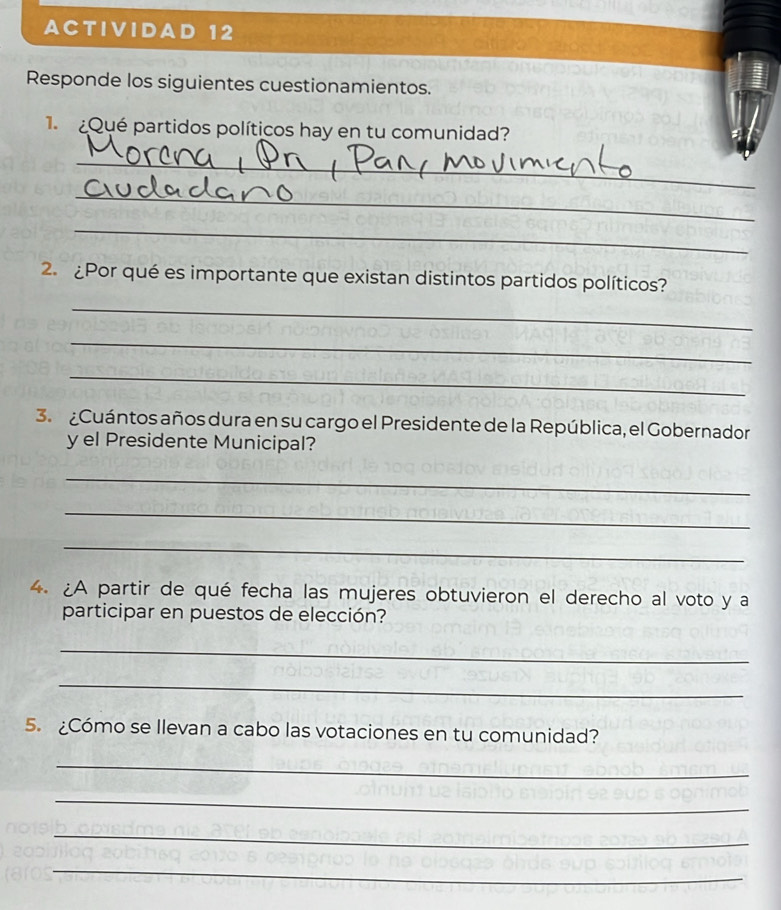 ACTIVIDAD 12
Responde los siguientes cuestionamientos.
1. ¿Qué partidos políticos hay en tu comunidad?
Morena, Pri, Pan, movimiento
ciudadano
2. ¿Por qué es importante que existan distintos partidos políticos?
3. ¿Cuántos años dura en su cargo el Presidente de la República, el Gobernador
y el Presidente Municipal?
4. ¿A partir de qué fecha las mujeres obtuvieron el derecho al voto y a
participar en puestos de elección?
5. ¿Cómo se llevan a cabo las votaciones en tu comunidad?